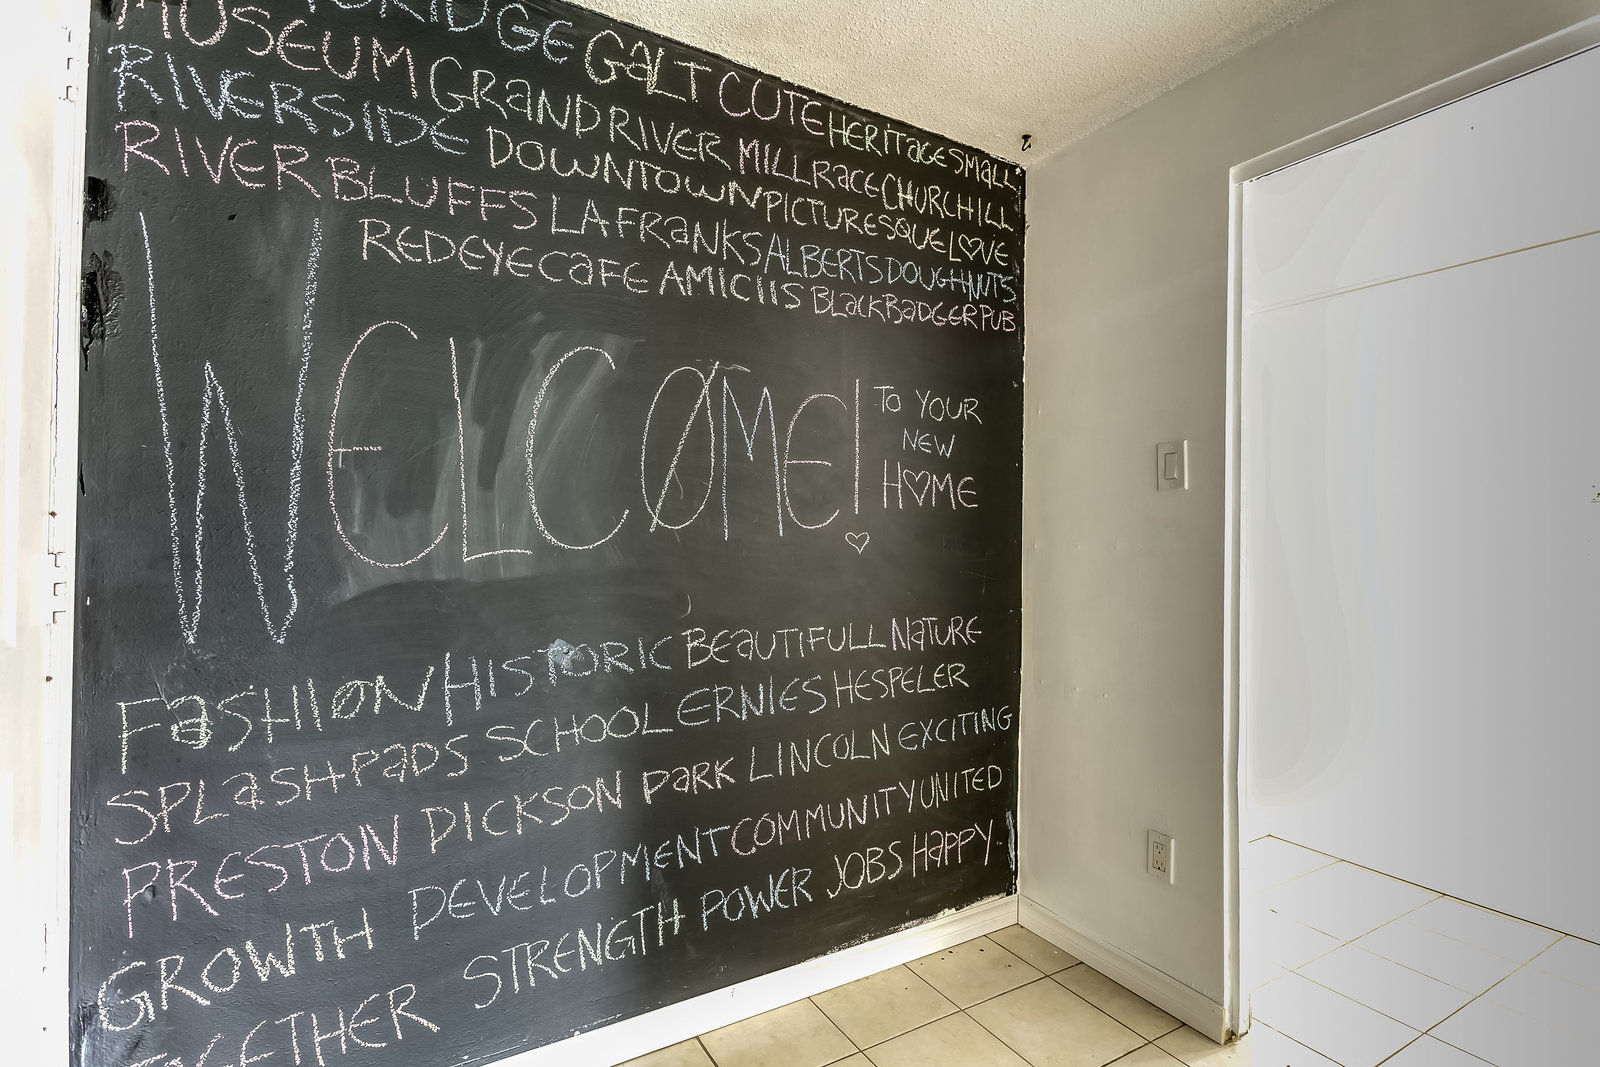 GALT CUTE HERITAGE SMALL
MUSEUM GRAND RIVER MILLRACE CHURCHILL
RIVERSIDE DOWNTOWN PICTURESQUE LOVE
RIVER BLUFFS LA FRANKS ALBERTS DOUGHNUTS
RED EYE CAFE AMICIIS BLACK BADGER PUB
WELCOME! TO YOUR
NEW
HOME
FASHION HISTORIC BEAUTIFULL NATURE
SPLASH PADS SCHOOL ERNIES HESPELER
PRESTON DICKSON PARK LINCOLN EXCITING
GROWTH DEVELOPMENT COMMUNITY UNITED
TOGETHER STRENGTH POWER JOBS HAPPY